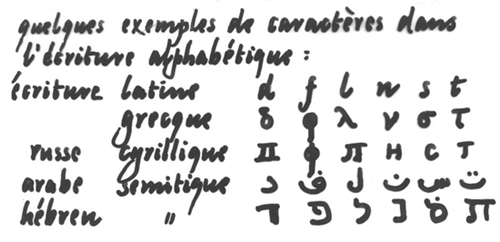 quelques exemples de caractères dans
l'écriture alphabétique :
écriture latine d f l n s t
grecque δ φ λ ν σ τ
russe cyrillique д ф л н с т
arabe sémitique د ف ل ن س ت
hébreu " ד פ ל נ ס ת